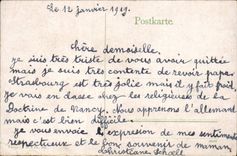 Le 12 janvier 1919.
Postkarte
chère demoiselle,
je suis très triste de vous avoir quittée
mais je suis très contente de revoir papa
Strasbourg est très jolie mais il y fait froid,
je vais en classe chez les religieuses de la
Doctrine de Nancy. Nous apprenons l'allemand
mais c'est bien difficile.
je vous envoie l'expresion de mes sentiments
respectueux et le bon souvenir de maman
Christiane